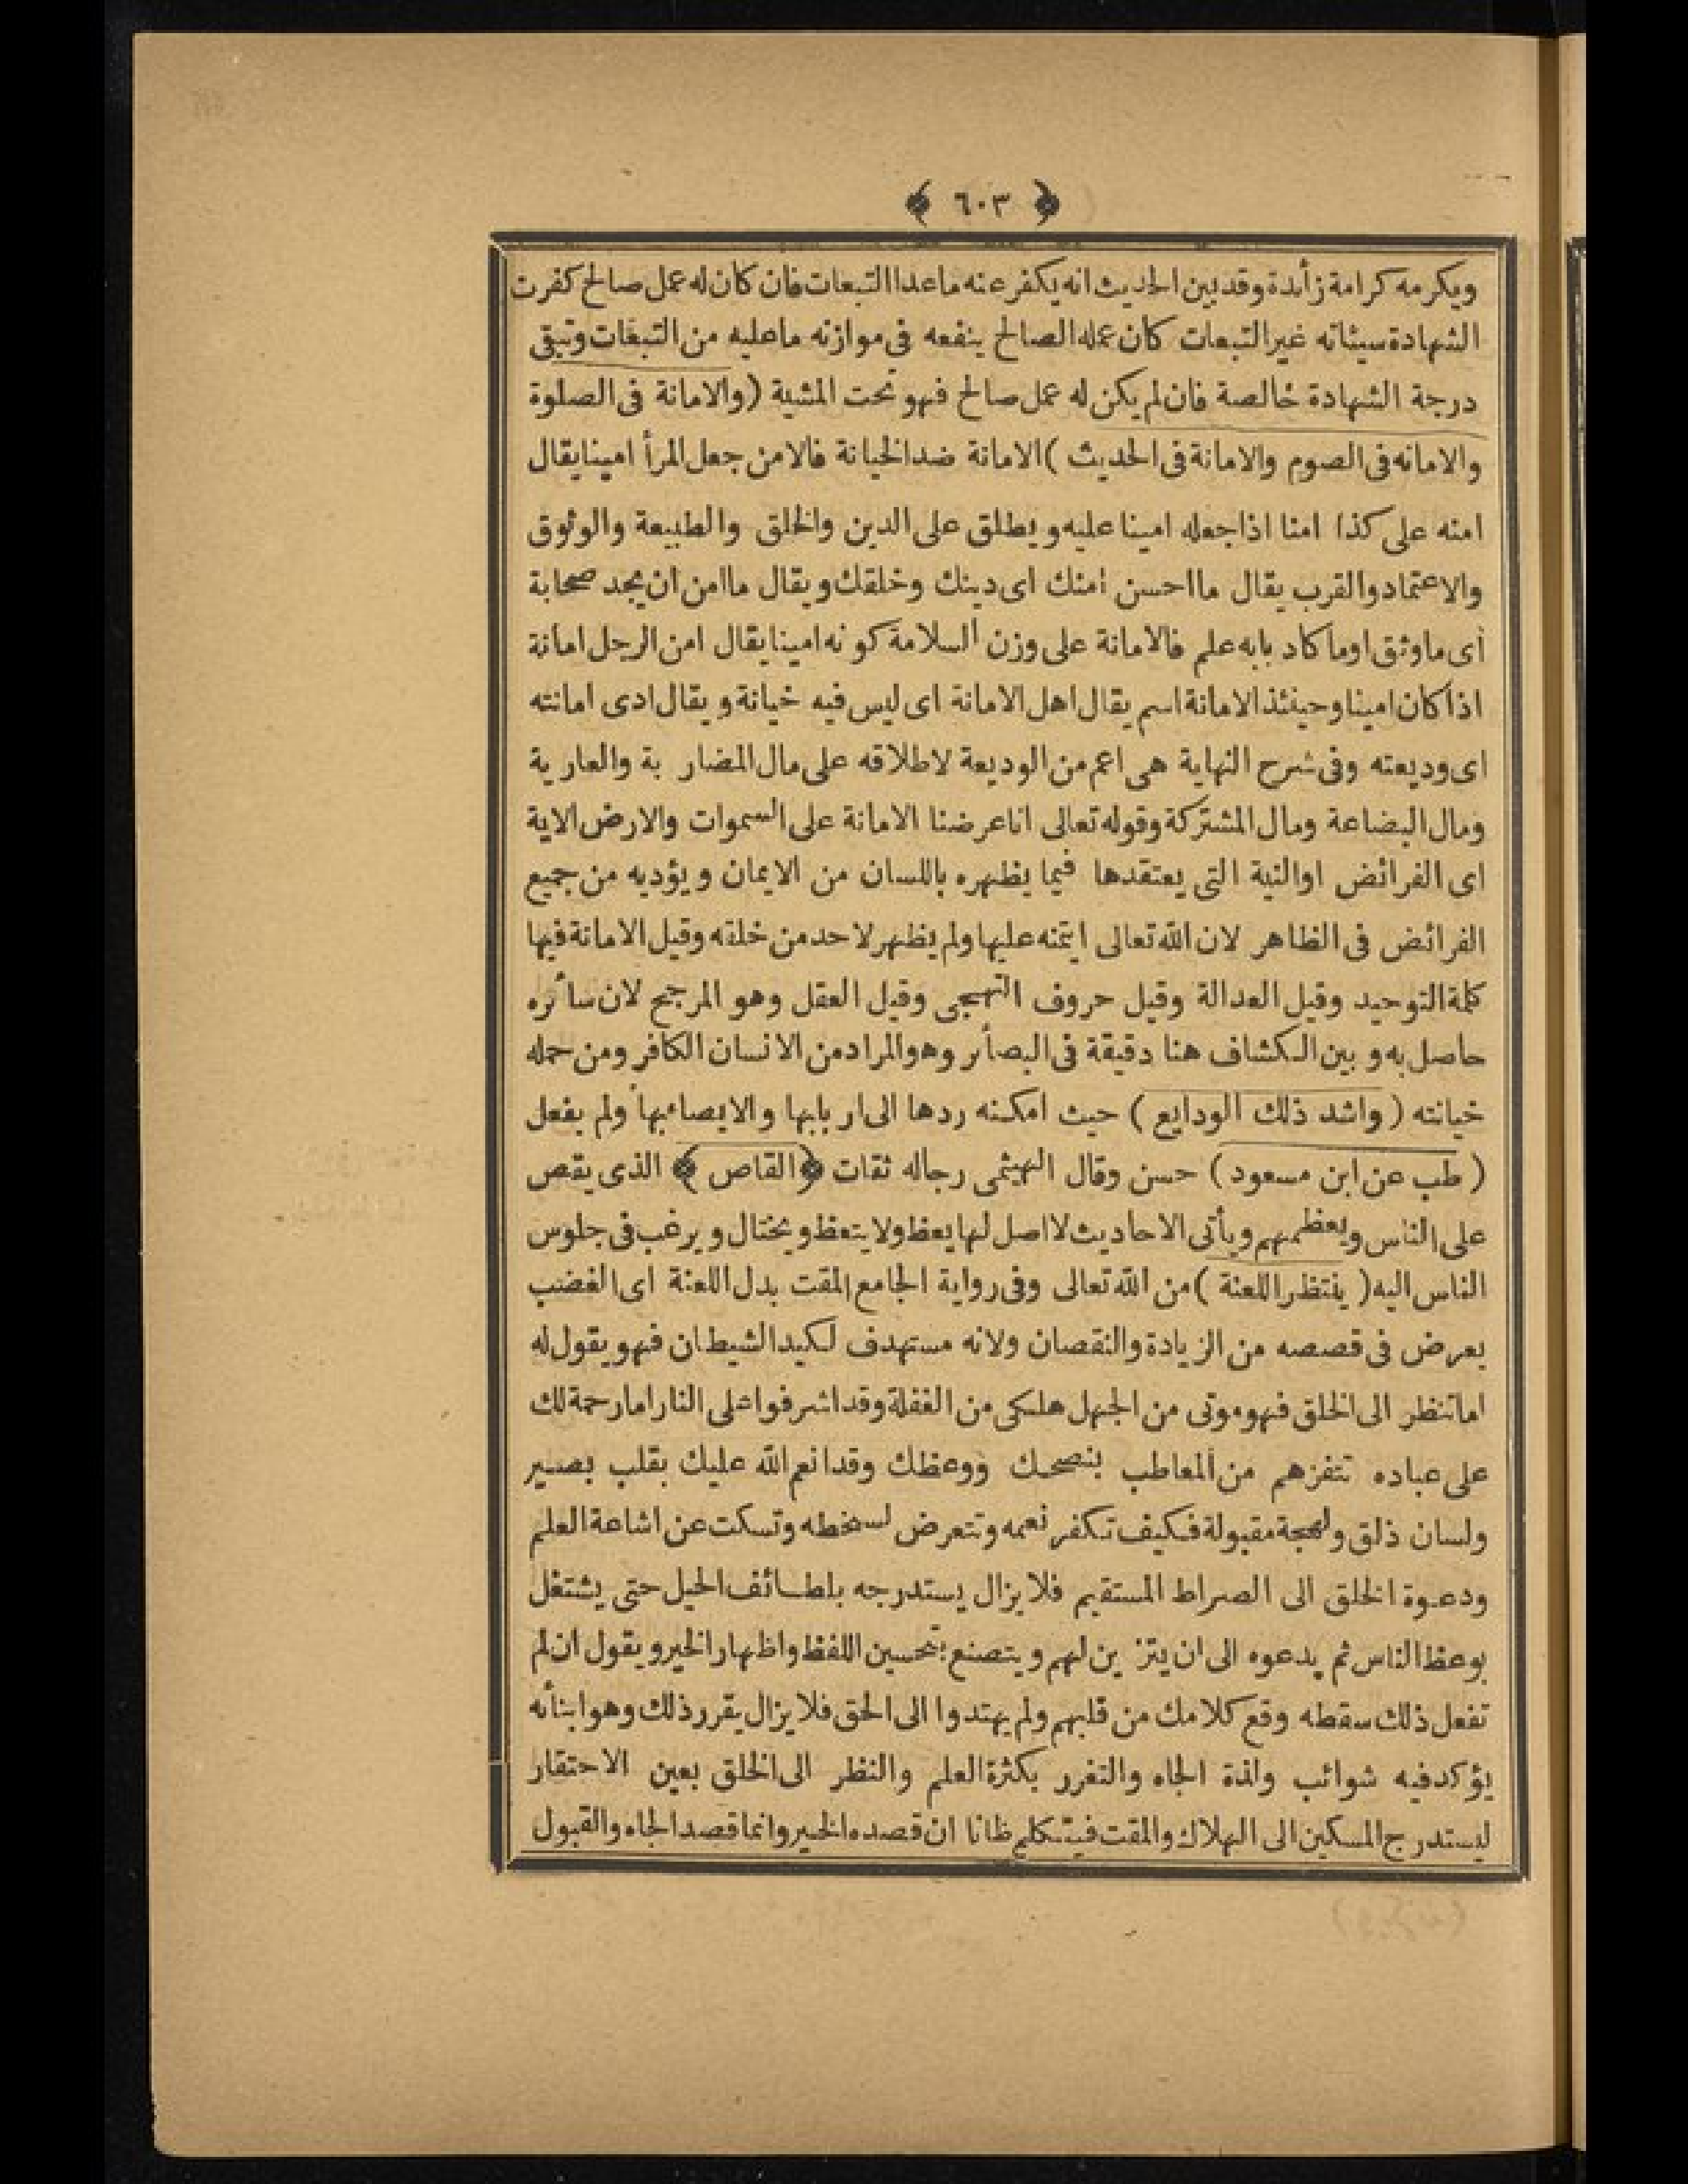 ﴿ ٦٠٣ ﴾
ويكرمه كرامة زائدة وقد بين الحديث انه يكفر عنه ماعدا التبعات فان كان له عمل صالح كفرت
الشهادة سيئاته غير التبعات كان عمله الصالح ينفعه فى موازنه ماعليه من التبعات وتبقى
درجة الشهادة خالصة فان لم يكن له عمل صالح فهو تحت المشية (والامانة فى الصلوة
والامانه فى الصوم والامانة فى الحديث) الامانة ضد الخيانة فالامن جعل المرأ امينا يقال
امنه على كذا امنا اذا جعله امينا عليه ويطلق على الدين والخلق والطبيعة والوثوق
والاعتماد والقرب يقال ما احسن امنك اى دينك وخلقك ويقال ما امن ان يجد صحابة
اى ماوثق اوما كاد بابه علم فالامانة على وزن السلامة كونه امينا يقال امن الرجل امانة
اذا كان امينا وحينئذ الامانة اسم يقال اهل الامانة اى ليس فيه خيانة ويقال ادى امانته
اى وديعته وفى شرح النهاية هى اعم من الوديعة لاطلاقه على مال المضاربة والعارية
ومال البضاعة ومال المشتركة وقوله تعالى انا عرضنا الامانة على السموات والارض الاية
اى الفرائض اوالنية التى يعتقدها فيما يظهره باللسان من الايمان ويؤديه من جميع
الفرائض فى الظاهر لان الله تعالى ايتمنه عليها ولم يظهر لاحد من خلقه وقيل الامانة فيها
كلمة التوحيد وقيل العدالة وقيل حروف التهجى وقيل العقل وهو المرجح لان سائره
حاصل به وبين الكشاف هنا دقيقة فى البصائر وهو المراد من الانسان الكافر ومن حمله
خيانته (واشد ذلك الودايع) حيث امكنه ردها الى اربابها والايصاء بها ولم يفعل
(طب عن ابن مسعود) حسن وقال الهيثمى رجاله ثقات ﴿القاص﴾ الذى يقص
على الناس ويعظمهم ويأتى الاحاديث لا اصل لها يعظ ولا يتعظ ويختال ويرغب فى جلوس
الناس اليه (ينتظر اللعنة) من الله تعالى وفى رواية الجامع المقت بدل اللعنة اى الغضب
يعرض فى قصصه من الزيادة والنقصان ولانه مستهدف لكيد الشيطان فهو يقول له
اما تنظر الى الخلق فهو موتى من الجهل هلكى من الغفلة وقد اشرفوا على النار اما رحمة لك
على عباده تنفزهم من المعاطب بنصحك ووعظك وقد انعم الله عليك بقلب بصير
ولسان ذلق ولهجة مقبولة فكيف تكفر نعمه وتتعرض لسخطه وتسكت عن اشاعة العلم
ودعوة الخلق الى الصراط المستقيم فلا يزال يستدرجه بلطائف الحيل حتى يشتغل
بوعظ الناس ثم يدعوه الى ان يتزين لهم ويتصنع بتحسين اللفظ واظهار الخير ويقول ان لم
تفعل ذلك سقطه وقع كلامك من قلبهم ولم يهتدوا الى الحق فلا يزال يقرر ذلك وهو ابنائه
يؤكد فيه شوائب ولذة الجاه والتغرر بكثرة العلم والنظر الى الخلق بعين الاحتقار
ليستدرج المسكين الى الهلاك والمقت فيتكلم ظانا ان قصده الخير وانما قصد الجاه والقبول